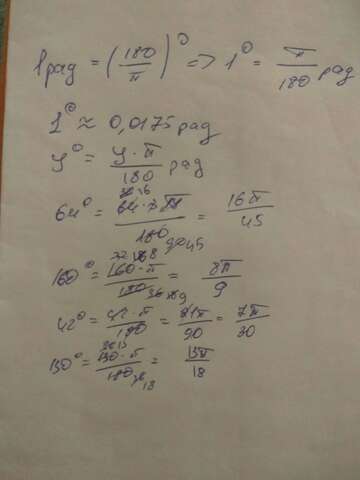 1 рад = (180/π)° => 1° = π/180 рад
1° ≈ 0,0175 рад
y° = y·π/180 рад
64° = 64·π/180 = 16π/45
160° = 160·π/180 = 8π/9
42° = 42·π/180 = 21π/90 = 7π/30
130° = 130·π/180 = 13π/18